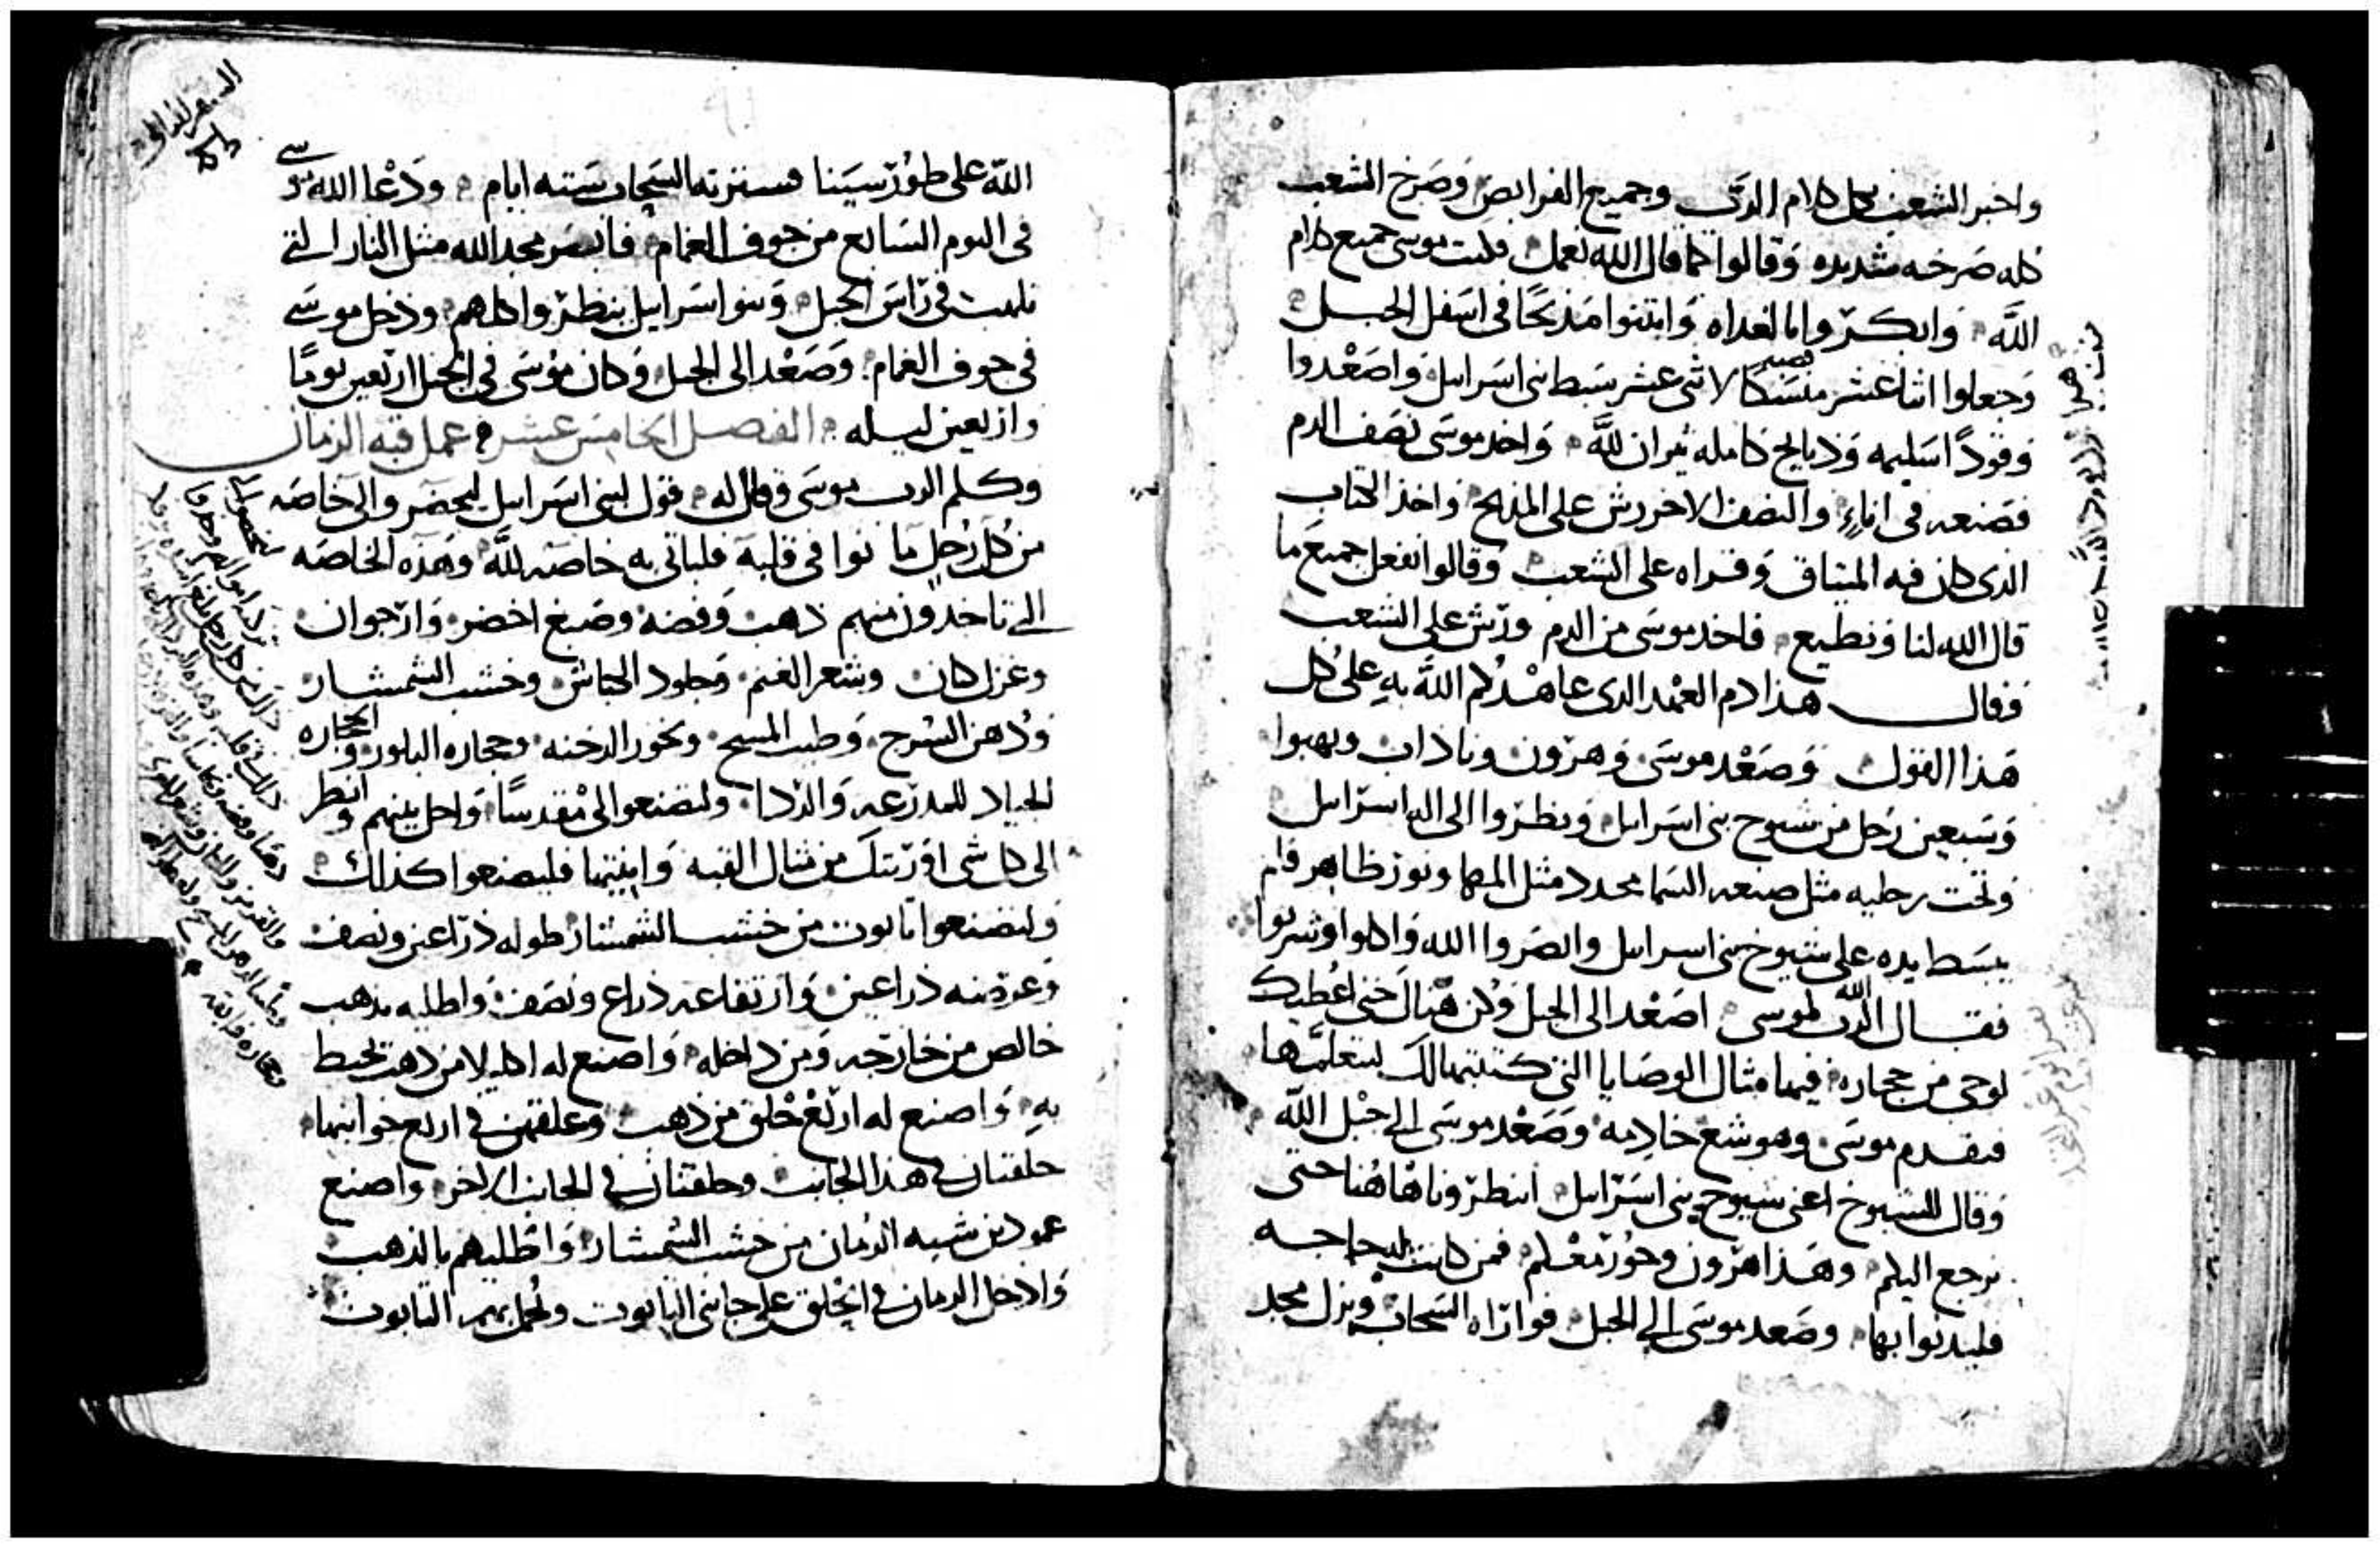 واخبر الشعب بكل كلام الرب وجميع الفرايض وصرخ الشعب
كله صرخه شديده وقالوا كما قال الله نعمل فكتب موسى جميع كلام
الله وابكروا بالغداه وابتنوا مذبحًا في اسفل الجبل
وجعلوا اثنا عشر منسكًا لاثني عشر سبط بني اسرايل واصعدوا
وقودًا سليمه وذبايح كامله ثيران لله واخد موسى نصف الدم
فصنعه في اناء والنصف الاخر رش على المذبح واخذ الكتاب
الذي كان فيه الميثاق وقراه على الشعب وقالوا نفعل جميع ما
قال الله لنا ونطيع فاخد موسى من الدم ورش على الشعب
وقال هذا دم العهد الذي عاهدكم الله به على كل
هذا القول وصعد موسى وهرون وناداب ويهبوا
وسبعين رجل من شيوخ بني اسرايل ونظروا الى اله اسرايل
وتحت رجليه مثل صنعه السما محدد مثل المها ونور ظاهر فلم
يبسط يده على شيوخ بني اسرايل وابصروا الله واكلوا وشربوا
فقال الرب الله لموسى اصعد الى الجبل وكن هناك حتى اعطيك
لوحى من حجاره فيهما مثال الوصايا التي كتبتهما لك لتعلمها
فتقدم موسى وهوشع خادمه وصعد موسى الى جبل الله
وقال للشيوخ اعنى شيوخ بني اسرايل انتظرونا هاهنا حتى
نرجع اليكم وهذا هرون وحور معكم فمن كانت له حاجه
فليدنوا بها وصعد موسى الى الجبل فواراه السحاب ونزل مجد
الله على طور سينا فسترته السحاب سته ايام ودعا الله موسى
في اليوم السابع من جوف الغمام فابصر مجد الله مثل النار التي
تلهب في راس الجبل وبنوا اسرايل ينظروا كلهم ودخل موسى
في جوف الغمام وصعد الى الجبل وكان موسى في الجبل اربعين يومًا
واربعين ليله الفصل الخامس عشر عمل قبه الزمان
وكلم الرب موسى وقال له قول لبني اسرايل ليحضروا الى خاصه
من كل رجل ما نوا في قلبه فلياتي به خاصه لله وهذه الخاصه
التي تاخدون منهم ذهب وفضه وصبغ اخضر وارجوان
وغزل كتان وشعر الغنم وجلود الكباش وخشب الشمشار
ودهن السرج وطيب المسح وبخور الدخنه وحجاره البلور والحجاره
الجياد للمدرعه والردا وليصنعوا لي مقدسًا واحل بينهم وانظر
الى كل شي اوريتك من مثال القبه وابنيتها فليصنعوا كذلك
وليصنعوا تابوت من خشب الشمشار طوله ذراعين ونصف
وعرضه ذراعين وارتفاعه ذراع ونصف واطليه بذهب
خالص من خارجه ومن داخله واصنع له اكليلا من ذهب تحيط
به واصنع له اربع حلق من ذهب وعلقهن في اربع جوانبها
حلقتان في هذا الجانب وحلقتان في الجانب الاخر واصنع
عمودين شبه الرمان من خشب الشمشار واطليهم بالذهب
وادخل الرمان في الحلق على جانبي التابوت وتحمل بهم التابوت